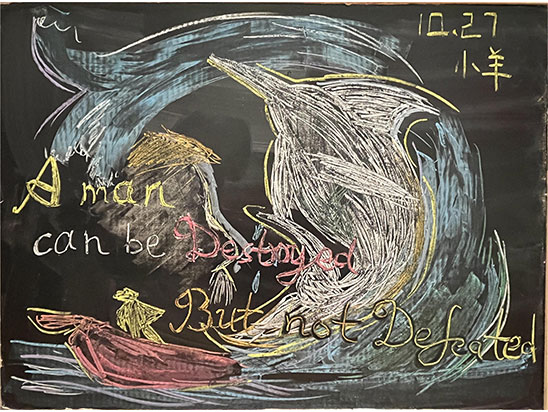 10.27
小羊
A man
can be Destroyed
But not Defeated